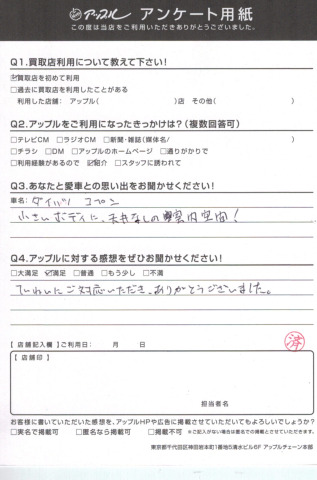 アップル アンケート用紙
この度は当店をご利用いただきありがとうございました。
Q1.買取店利用について教えて下さい!
☑買取店を初めて利用
□過去に買取店を利用したことがある
利用した店舗: アップル( )店 その他( )
Q2.アップルをご利用になったきっかけは?(複数回答可)
□テレビCM □ラジオCM □新聞・雑誌(媒体名/ )
□チラシ □DM □アップルのホームページ □通りがかりで
□利用経験があるので ☑紹介 □スタッフに誘われて
Q3.あなたと愛車との思い出をお聞かせください!
車名: ダイハツ コペン
小さいボディに、
室内空間!
Q4.アップルに対する感想をぜひお聞かせください!
□大満足 ☑満足 □普通 □もう少し □不満
ていねいにご対応いただき、ありがとうございました。
【店舗記入欄】ご利用日: 月 日
済
【店舗印】
担当者名
お客様に書いていただいた感想を、アップルHPや広告に掲載させていただいてもよろしいでしょうか?
□実名で掲載可 □匿名なら掲載可 □掲載不可 ※ご記入がない場合は匿名での掲載とさせていただきます。
東京都千代田区神田岩本町1番地5清水ビル6F アップルチェーン本部